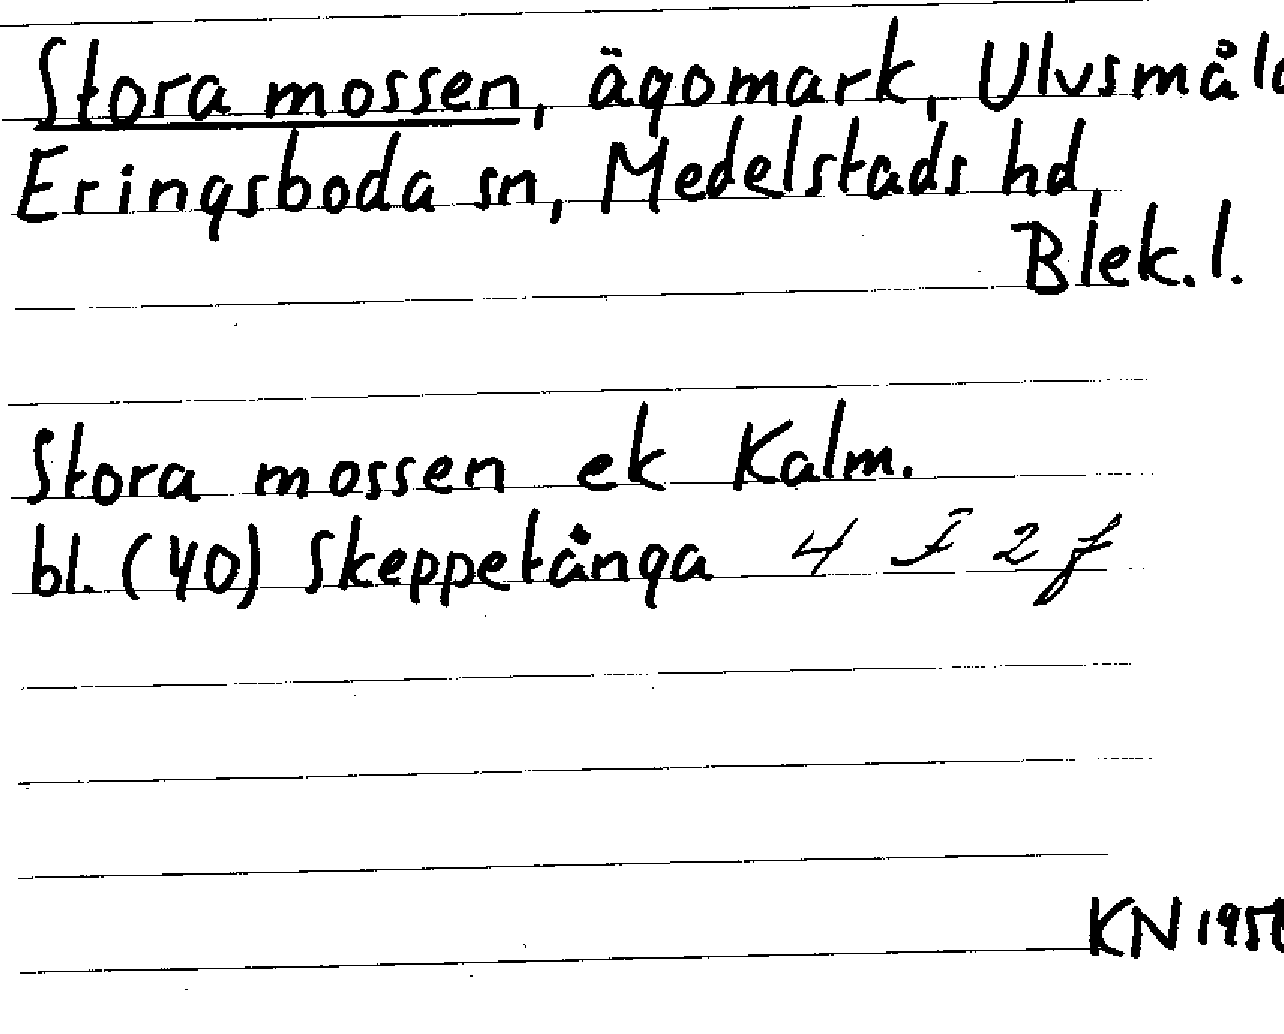 Stora mossen, ägomark, Ulvsmåla
Eringsboda sn, Medelstads hd,
Blek. l.
Stora mossen ek Kalm.
bl. (40) Skeppetånga 4 I 2 f
KN